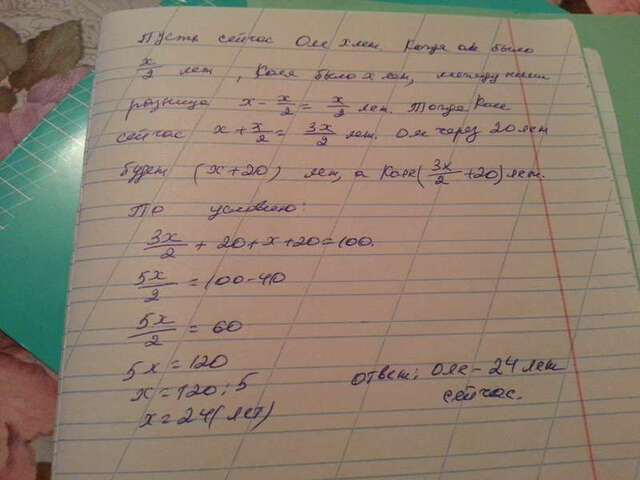 Пусть сейчас Оле x лет. Когда ей было
x/2 лет, Коле было x лет, между ними
разница x - x/2 = x/2 лет. Тогда Коле
сейчас x + x/2 = 3x/2 лет. Оле через 20 лет
будет (x+20) лет, а Коле (3x/2 + 20) лет.
По условию:
3x/2 + 20 + x + 20 = 100.
5x/2 = 100 - 40
5x/2 = 60
5x = 120
x = 120 : 5
x = 24 (лет)
Ответ: Оле - 24 лет
сейчас.